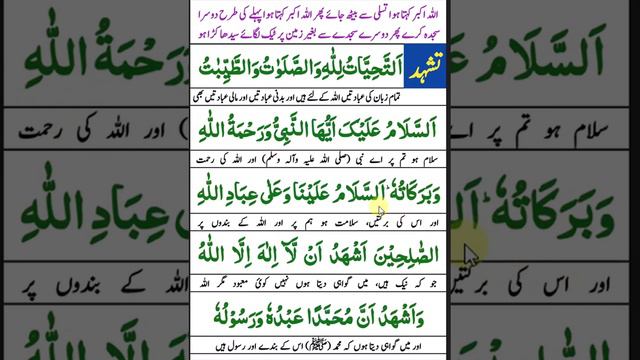 اللہ اکبر کہتا ہوا تسلی سے بیٹھ جائے پھر اللہ اکبر کہتا ہوا پہلے کی طرح دوسرا
سجدہ کرے پھر دوسرے سجدے سے بغیر زمین پر ٹیک لگائے سیدھا کھڑا ہو
تشہد
اَلتَّحِیَّاتُ لِلّٰہِ وَالصَّلَوٰتُ وَالطَّیِّبٰتُ
تمام زبان کی عبادتیں اللہ کے لئے ہیں اور بدنی عبادتیں اور مالی عبادتیں بھی
اَلسَّلَامُ عَلَیْکَ اَیُّھَا النَّبِیُّ وَرَحْمَۃُ اللّٰہِ
سلام ہو تم پر اے نبی (صلی اللہ علیہ وآلہ وسلم) اور اللہ کی رحمت
وَبَرَکَاتُہٗ ؕ اَلسَّلَامُ عَلَیْنَا وَعَلٰی عِبَادِ اللّٰہِ
اور اس کی برکتیں، سلامت ہو ہم پر اور اللہ کے بندوں پر
الصّٰلِحِیْنَ اَشْھَدُ اَنْ لَّآ اِلٰہَ اِلَّا اللّٰہُ
جو کہ نیک ہیں، میں گواہی دیتا ہوں نہیں کوئی معبود مگر اللہ
وَاَشْھَدُ اَنَّ مُحَمَّدًا عَبْدُہٗ وَرَسُوْلُہٗ
اور میں گواہی دیتا ہوں کہ محمد (ﷺ) اس کے بندے اور رسول ہیں